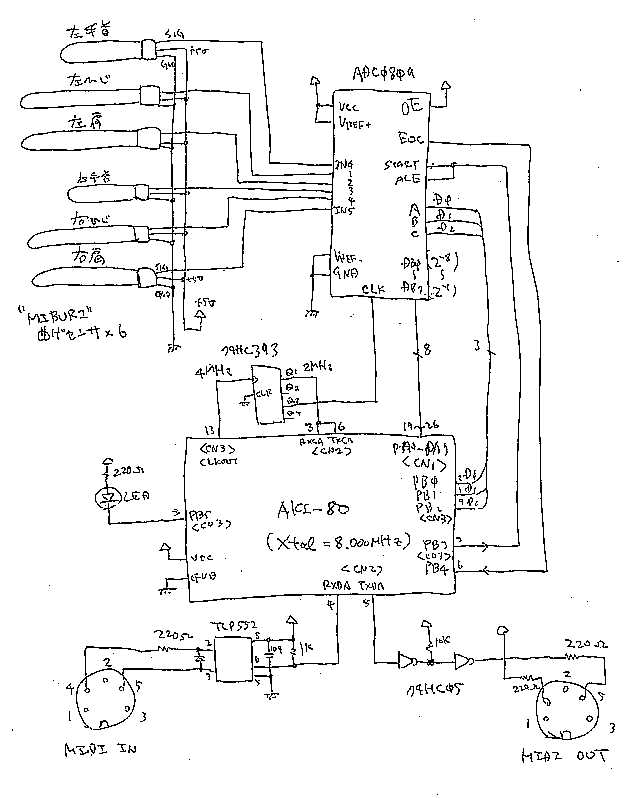 左手首
SIG
+5V
GND
左ひじ
左肩
右手首
右ひじ
右肩
SIG
+5V
GND
+5V
"MIBURI"
曲げセンサ×6
ADC0809
VCC
VREF+
OE
EOC
START
ALE
IN0
1
2
3
4
IN5
A
B
C
D0
D1
D2
VREF-
GND
CLK
DB0 (2-8)
DB7 (2-1)
8
3
74HC393
4MHz
2MHz
CLR
Q1
Q2
Q3
Q4
13
8
6
19~26
<CN3>
CLKOUT
RXCA TXCA
<CN2>
PA0-PA7
<CN1>
PB0
PB1
PB2
<CN3>
220Ω
LED
3
PB5
<CN3>
AKI-80
(Xtal = 8.000MHz)
PB3
<CN3>
PB4
6
VCC
GND
<CN2>
RXDA TXDA
4
TLP552
220Ω
2
3
8
6
5
1K
10K
74HC05
220Ω
220Ω
4
2
5
1
3
MIDI IN
2
5
1
3
MIDI OUT